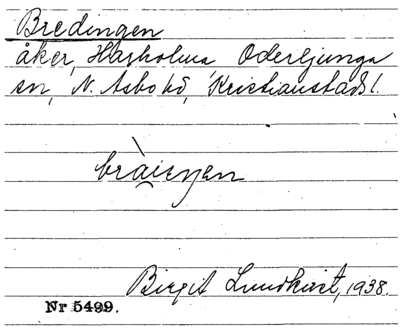 Bredingen
åker, Hasholma Oderljunga
sn, N. Åsbo hd, Kristianstads l.
Birgit Lundkvist, 1938.
Nr 5499.